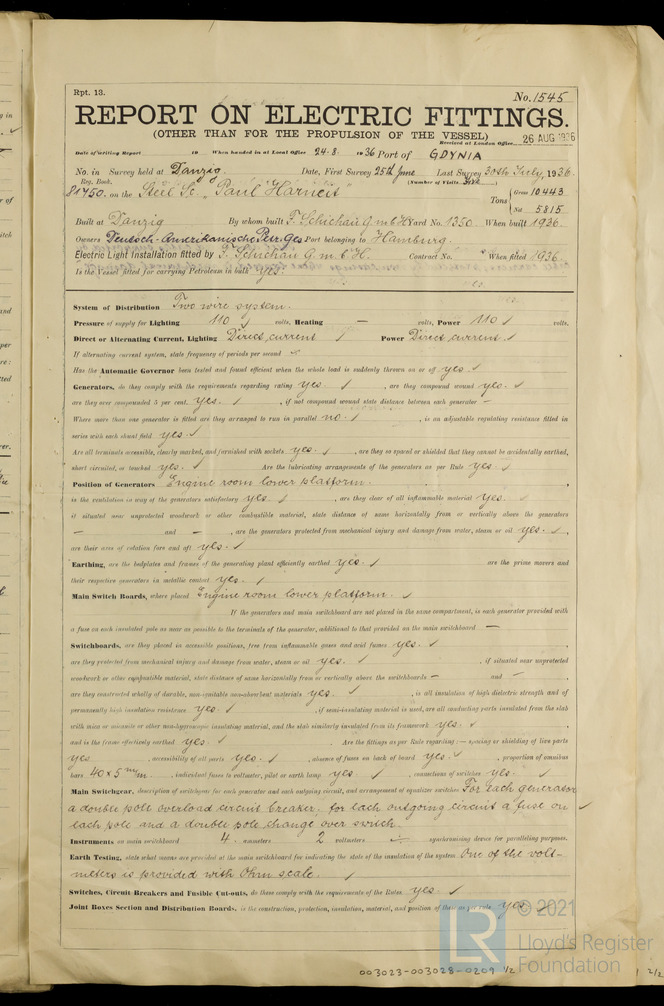 Rpt. 13.
No. 1545
REPORT ON ELECTRIC FITTINGS.
(OTHER THAN FOR THE PROPULSION OF THE VESSEL)
Received at London Office 26 AUG 1936
Date of writing Report 19 When handed in at Local Office 24-8- 1936 Port of GDYNIA
No. in Survey held at Danzig. Date, First Survey 25th June Last Survey 30th July, 1936
Reg. Book. (Number of Visits)
81750. on the Steel Sc. "Paul Harneit" Tons { Gross 10443
Net 5815
Built at Danzig By whom built F. Schichau G.m.b.H. Yard No. 1350. When built 1936.
Owners Deutsch-Amerikanische Petr. Ges Port belonging to Hamburg.
Electric Light Installation fitted by F. Schichau G.m.b.H. Contract No. When fitted 1936.
Is the Vessel fitted for carrying Petroleum in bulk yes.
System of Distribution Two wire system.
Pressure of supply for Lighting 110 ✓ volts, Heating — volts, Power 110 ✓ volts.
Direct or Alternating Current, Lighting Direct current ✓ Power Direct current ✓
If alternating current system, state frequency of periods per second ✓
Has the Automatic Governor been tested and found efficient when the whole load is suddenly thrown on or off yes. ✓
Generators, do they comply with the requirements regarding rating yes. ✓ , are they compound wound yes. ✓
are they over compounded 5 per cent. yes. ✓ , if not compound wound state distance between each generator —
Where more than one generator is fitted are they arranged to run in parallel no. ✓ , is an adjustable regulating resistance fitted in
series with each shunt field yes. ✓
Are all terminals accessible, clearly marked, and furnished with sockets yes. ✓ , are they so spaced or shielded that they cannot be accidentally earthed,
short circuited, or touched yes. ✓ Are the lubricating arrangements of the generators as per Rule yes. ✓
Position of Generators Engine room lower platform.
is the ventilation in way of the generators satisfactory yes. ✓ , are they clear of all inflammable material yes. ✓
if situated near unprotected woodwork or other combustible material, state distance of same horizontally from or vertically above the generators
— and — , are the generators protected from mechanical injury and damage from water, steam or oil yes. ✓ ,
are their axes of rotation fore and aft yes. ✓
Earthing, are the bedplates and frames of the generating plant efficiently earthed yes. ✓ are the prime movers and
their respective generators in metallic contact yes. ✓
Main Switch Boards, where placed Engine room lower platform. ✓
If the generators and main switchboard are not placed in the same compartment, is each generator provided with
a fuse on each insulated pole as near as possible to the terminals of the generator, additional to that provided on the main switchboard —
Switchboards, are they placed in accessible positions, free from inflammable gases and acid fumes yes. ✓
are they protected from mechanical injury and damage from water, steam or oil yes. ✓ , if situated near unprotected
woodwork or other combustible material, state distance of same horizontally from or vertically above the switchboards — and — ,
are they constructed wholly of durable, non-ignitable non-absorbent materials yes. ✓ , is all insulation of high dielectric strength and of
permanently high insulation resistance yes. ✓ , if semi-insulating material is used, are all conducting parts insulated from the slab
with mica or micanite or other non-hygroscopic insulating material, and the slab similarly insulated from its framework yes. ✓ ,
and is the frame effectively earthed yes. ✓ Are the fittings as Per Rule regarding :— spacing or shielding of live parts
yes , accessibility of all parts yes. ✓ , absence of fuses on back of board yes. ✓ , proportion of omnibus
bars 40 × 5 m/m. , individual fuses to voltmeter, pilot or earth lamp yes. ✓ , connections of switches yes. ✓
Main Switchgear, description of switchgear for each generator and each outgoing circuit, and arrangement of equalizer switches For each generator
a double pole overload circuit breaker. for each outgoing circuit a fuse on ✓
each pole and a double pole change over switch.
Instruments on main switchboard 4. ammeters 2 voltmeters ÷ synchronising device for paralleling purposes.
Earth Testing, state what means are provided at the main switchboard for indicating the state of the insulation of the system One of the volt-
meters is provided with Ohm scale. ✓
Switches, Circuit Breakers and Fusible Cut-outs, do these comply with the requirements of the Rules yes. ✓
Joint Boxes Section and Distribution Boards, is the construction, protection, insulation, material, and position of these as per rule yes.
© 2021
LR
Lloyd's Register
Foundation
003023-003028-0209 1/2
2/2